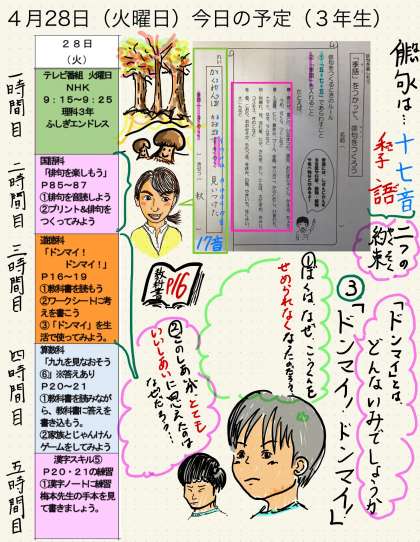 4月28日（火曜日）今日の予定（３年生）
２８日
（火）
一時間目
テレビ番組　火曜日
NHK
９：１５～９：２５
理科３年
ふしぎエンドレス
二時間目
国語科
「俳句を楽しもう」
Ｐ８５～８７
①俳句を音読しよう
②プリント＆俳句を
つくってみよう
三時間目
道徳科
「ドンマイ！
ドンマイ！」
Ｐ１６～１９
①教科書を読もう
②ワークシートに考
えを書こう
③「ドンマイ」を生
活で使ってみよう。
四時間目
算数科
「九九を見なおそう
⑥」※答えあり
Ｐ２０～２１
①教科書を読みなが
ら、教科書に答えを
書き込もう。
②家族とじゃんけん
ゲームをしてみよう
五時間目
漢字スキル⑤
Ｐ２０・２１の練習
①漢字ノートに練習
梅本先生の手本を見
て書きましょう。
俳句は…十七音
季語
二つの
約束
「季語」をつかって、俳句をつくろう
名前
たとえば、
秋
17音
教科書
P16
③「ドンマイ！ドンマイ！」
「ドンマイ」とは、
どんないみでしょうか
①ぼくは、なぜ、こうくんを
せめられなくなったのだろう？
②このしあいが、とても
いいしあいに思えたのは
なぜだろう？…